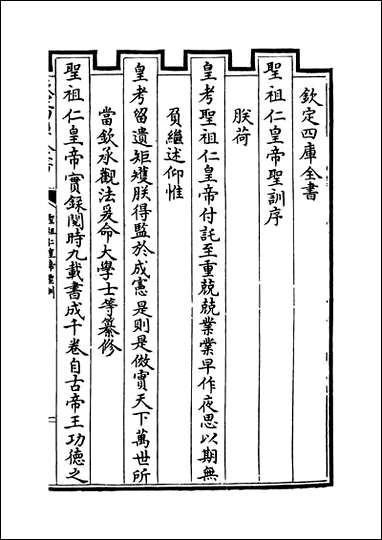 欽定四庫全書
聖祖仁皇帝聖訓序
朕荷
皇考聖祖仁皇帝付託至重兢兢業業早作夜思以期無
負繼述仰惟
皇考留遺矩矱朕得監於成憲是則是傚實天下萬世所
當欽承觀法爰命大學士等纂修
聖祖仁皇帝實錄閱時九載書成千卷自古帝王功德之
聖祖仁皇帝聖訓